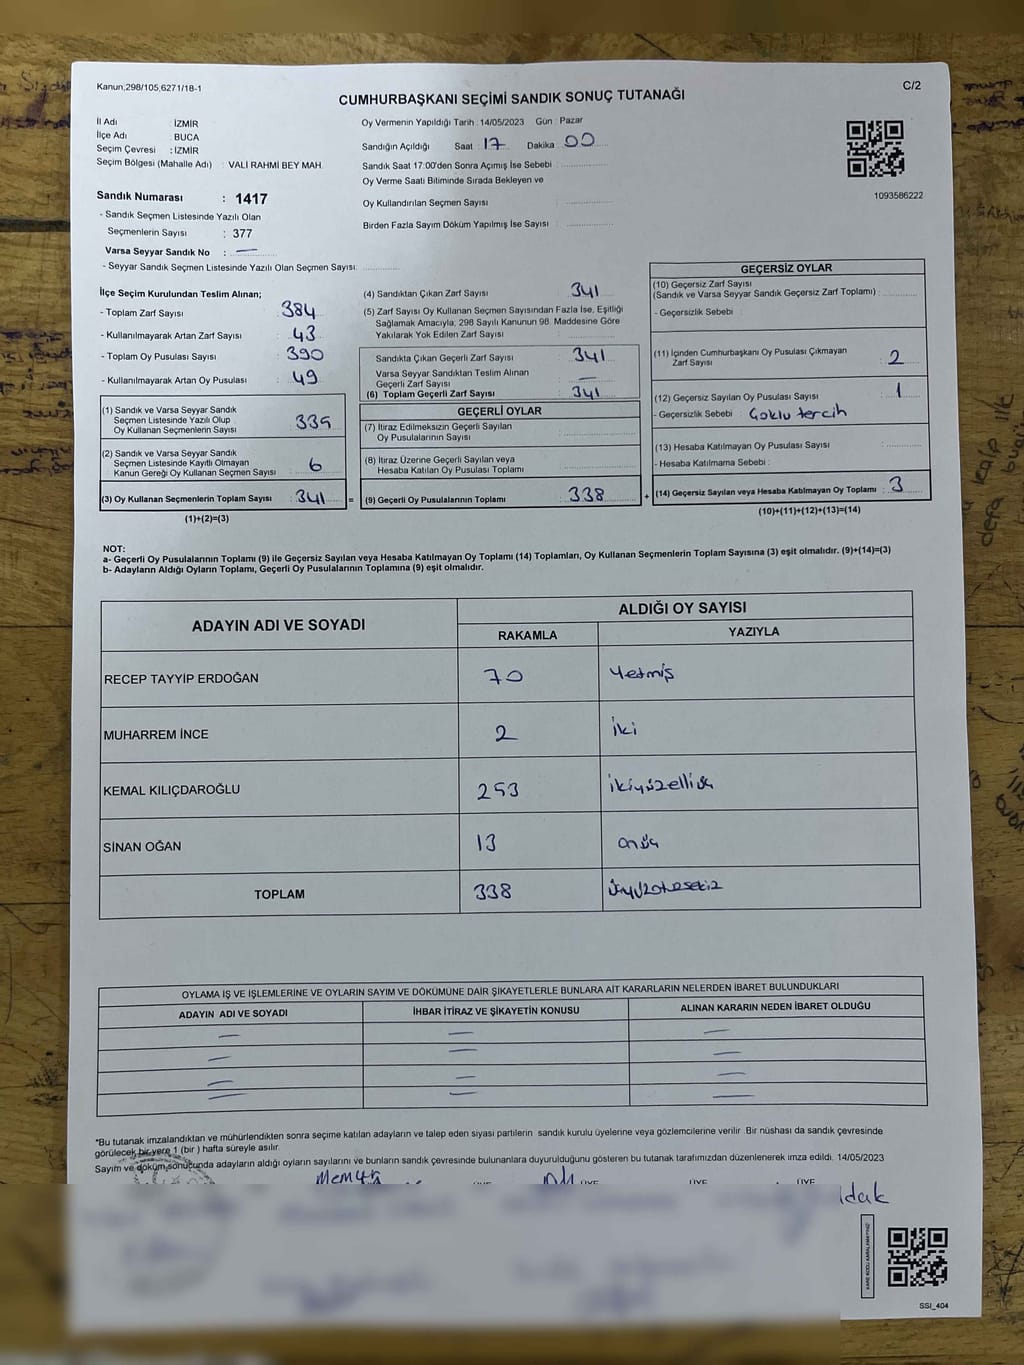 Kanun,298/105,6271/18-1
C/2
CUMHURBAŞKANI SEÇİMİ SANDIK SONUÇ TUTANAĞI
İl Adı : İZMİR
İlçe Adı : BUCA
Seçim Çevresi : İZMİR
Seçim Bölgesi (Mahalle Adı) : VALİ RAHMİ BEY MAH.
Sandık Numarası : 1417
- Sandık Seçmen Listesinde Yazılı Olan
Seçmenlerin Sayısı : 377
Varsa Seyyar Sandık No : —
- Seyyar Sandık Seçmen Listesinde Yazılı Olan Seçmen Sayısı:
Oy Vermenin Yapıldığı Tarih : 14/05/2023 Gün : Pazar
Sandığın Açıldığı Saat : 17 Dakika : 00
Sandık Saat 17:00'den Sonra Açımış İse Sebebi :
Oy Verme Saati Bitiminde Sırada Bekleyen ve
Oy Kullandırılan Seçmen Sayısı :
Birden Fazla Sayım Döküm Yapılmış İse Sayısı :
1093586222
İlçe Seçim Kurulundan Teslim Alınan;
- Toplam Zarf Sayısı : 384
- Kullanılmayarak Artan Zarf Sayısı : 43
- Toplam Oy Pusulası Sayısı : 390
- Kullanılmayarak Artan Oy Pusulası : 49
(1) Sandık ve Varsa Seyyar Sandık
Seçmen Listesinde Yazılı Olup
Oy Kullanan Seçmenlerin Sayısı : 335
(2) Sandık ve Varsa Seyyar Sandık
Seçmen Listesinde Kayıtlı Olmayan
Kanun Gereği Oy Kullanan Seçmen Sayısı : 6
(3) Oy Kullanan Seçmenlerin Toplam Sayısı : 341 =
(1)+(2)=(3)
(4) Sandıktan Çıkan Zarf Sayısı : 341
(5) Zarf Sayısı Oy Kullanan Seçmen Sayısından Fazla İse, Eşitliği
Sağlamak Amacıyla, 298 Sayılı Kanunun 98. Maddesine Göre
Yakılarak Yok Edilen Zarf Sayısı :
Sandıkta Çıkan Geçerli Zarf Sayısı : 341
Varsa Seyyar Sandıktan Teslim Alınan
Geçerli Zarf Sayısı : —
(6) Toplam Geçerli Zarf Sayısı : 341
GEÇERLİ OYLAR
(7) İtiraz Edilmeksizin Geçerli Sayılan
Oy Pusulalarının Sayısı :
(8) İtiraz Üzerine Geçerli Sayılan veya
Hesaba Katılan Oy Pusulası Toplamı :
(9) Geçerli Oy Pusulalarının Toplamı : 338 +
GEÇERSİZ OYLAR
(10) Geçersiz Zarf Sayısı
(Sandık ve Varsa Seyyar Sandık Geçersiz Zarf Toplamı) :
- Geçersizlik Sebebi :
(11) İçinden Cumhurbaşkanı Oy Pusulası Çıkmayan
Zarf Sayısı : 2
(12) Geçersiz Sayılan Oy Pusulası Sayısı : 1
- Geçersizlik Sebebi : Çoklu tercih
(13) Hesaba Katılmayan Oy Pusulası Sayısı :
- Hesaba Katılmama Sebebi :
(14) Geçersiz Sayılan veya Hesaba Katılmayan Oy Toplamı : 3
(10)+(11)+(12)+(13)=(14)
NOT:
a- Geçerli Oy Pusulalarının Toplamı (9) ile Geçersiz Sayılan veya Hesaba Katılmayan Oy Toplamı (14) Toplamları, Oy Kullanan Seçmenlerin Toplam Sayısına (3) eşit olmalıdır. (9)+(14)=(3)
b- Adayların Aldığı Oyların Toplamı, Geçerli Oy Pusulalarının Toplamına (9) eşit olmalıdır.
ADAYIN ADI VE SOYADI
ALDIĞI OY SAYISI
RAKAMLA YAZIYLA
RECEP TAYYİP ERDOĞAN 70 Yetmiş
MUHARREM İNCE 2 iki
KEMAL KILIÇDAROĞLU 253 ikiyüzelliüç
SİNAN OĞAN 13 onüç
TOPLAM 338 üçyüzotuzsekiz
OYLAMA İŞ VE İŞLEMLERİNE VE OYLARIN SAYIM VE DÖKÜMÜNE DAİR ŞİKAYETLERLE BUNLARA AİT KARARLARIN NELERDEN İBARET BULUNDUKLARI
ADAYIN ADI VE SOYADI İHBAR İTİRAZ VE ŞİKAYETİN KONUSU ALINAN KARARIN NEDEN İBARET OLDUĞU
— — —
— — —
— — —
— — —
*Bu tutanak imzalandıktan ve mühürlendikten sonra seçime katılan adayların ve talep eden siyasi partilerin sandık kurulu üyelerine veya gözlemcilerine verilir. Bir nüshası da sandık çevresinde
görülecek bir yere 1 (bir ) hafta süreyle asılır.
Sayım ve döküm sonucunda adayların aldığı oyların sayılarını ve bunların sandık çevresinde bulunanlara duyurulduğunu gösteren bu tutanak tarafımızdan düzenlenerek imza edildi. 14/05/2023
ÜYE ÜYE ÜYE
KARE KODU KARALAMAYINIZ!
SSI_404